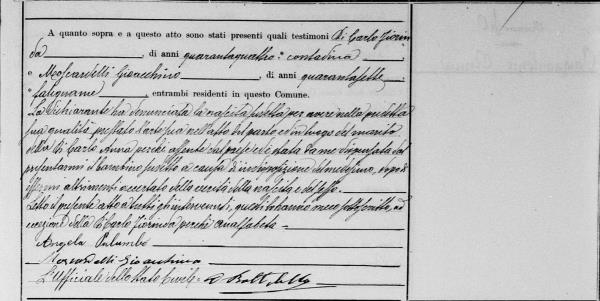 A quanto sopra e a questo atto sono stati presenti quali testimoni Di Carlo Fiorin
da, di anni quarantaquattro, contadina
e Moscardelli Gioacchino, di anni quarantasette
falegname, entrambi residenti in questo Comune.
La dichiarante ha denunciato la nascita suddetta per avere nella predetta
sua qualità prestato l'arte sua nell'atto del parto ed in luogo del marito
della Di Carlo Anna perchè assente dal paese ed è stata da me dispensata dal
presentarmi il bambino suddetto a causa di indisposizione del medesimo, dopo di
essermi altrimenti accertato della verità della nascita di esso.
Letto il presente atto a tutti gli intervenuti, questi lo hanno meco sottoscritto, ad
eccezione della Di Carlo Fiorinda perchè analfabeta =
Angela Palumbo
Moscardelli Gioacchino
L'Ufficiale dello Stato Civile =